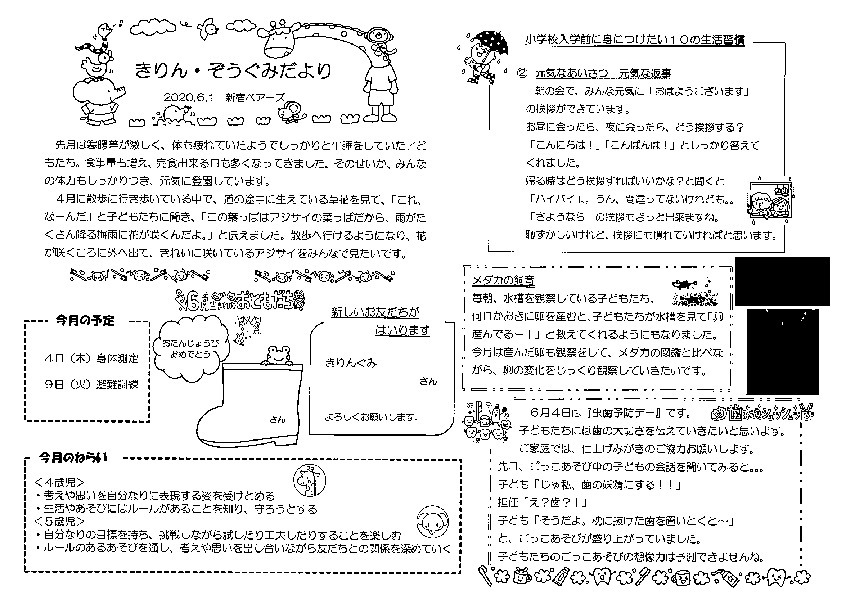 きりん・ぞうぐみだより
2020.6.1 新宿ベアーズ
先月は寒暖差が激しく、体も疲れていたようでしっかりと午睡をしていた子ど
もたち。食事量も増え、完食出来る日も多くなってきました。そのせいか、みんな
の体力もしっかりつき、元気に登園しています。
４月に散歩に行き歩いている中で、道の途中に生えている草花を見て、「これ、
なーんだ」と子どもたちに聞き、「この葉っぱはアジサイの葉っぱだから、雨がた
くさん降る梅雨に花が咲くんだよ。」と伝えました。散歩へ行けるようになり、花
が咲くころに外へ出て、きれいに咲いているアジサイをみんなで見たいです。
今月の予定
４日（木）身体測定
９日（火）避難訓練
おたんじょうび
おめでとう
さん
新しいお友だちが
はいります
きりんぐみ
さん
よろしくお願いします。
今月のねらい
＜４歳児＞
・考えや思いを自分なりに表現する姿を受けとめる
・生活やあそびにはルールがあることを知り、守ろうとする
＜５歳児＞
・自分なりの目標を持ち、挑戦しながら試したり工夫したりすることを楽しむ
・ルールのあるあそびを通し、考えや思いを出し合いながら友だちとの関係を深めていく
小学校入学前に身につけたい１０の生活習慣
② 元気なあいさつ 元気な返事
朝の会で、みんな元気に「おはようございます」
の挨拶ができています。
お昼に会ったら、夜に会ったら、どう挨拶する？
「こんにちは！」「こんばんは！」としっかり答えて
くれました。
帰る時はどう挨拶すればいいかな？と聞くと
「バイバイ」。うん、間違ってないけれども。。
「さようなら」の挨拶でぎっと出来ますね。
恥ずかしいけれど、挨拶にも慣れていければと思います。
メダカの飼育
毎朝、水槽を観察している子どもたち。
何日かおきに卵を産むと、子どもたちが水槽を見て「卵
産んでるー！」と教えてくれるようにもなりました。
今月は産んだ卵も観察をして、メダカの図鑑と比べな
がら、卵の変化をじっくり観察していきたいです。
６月４日は、『虫歯予防デー』です。
子どもたちには歯の大切さを伝えていきたいと思います。
ご家庭では、仕上げみがきのご協力お願いします。
先日、ごっこあそび中の子どもの会話を聞いてみると。。。
子ども「じゃ私、歯の妖精にする！！」
担任「え？歯？！」
子ども「そうだよ。夜に抜けた歯を置いとくと～」
と、ごっこあそびが盛り上がっていました。
子どもたちのごっこあそびの想像力は予測できませんね。